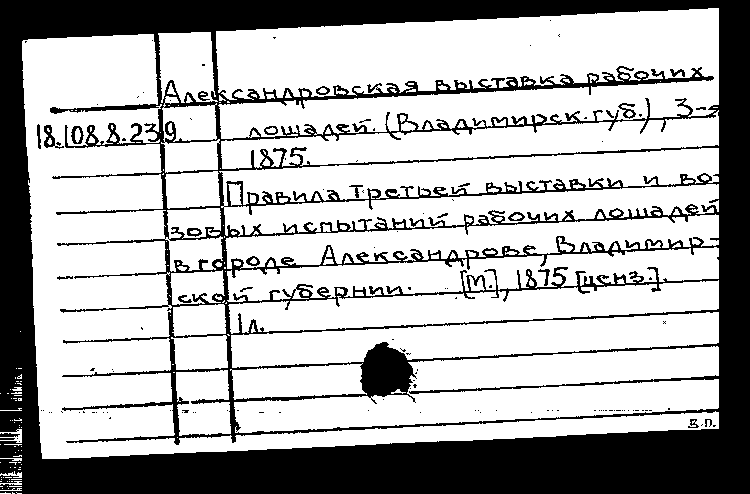 Александровская выставка рабочих
18.108.8.239. лошадей. (Владимирск. губ.), 3-я
1875.
Правила Третьей выставки и во-
зовых испытаний рабочих лошадей
в городе Александрове, Владимир-
ской губернии. [М.], 1875 [ценз.].
1 л.
В.П.